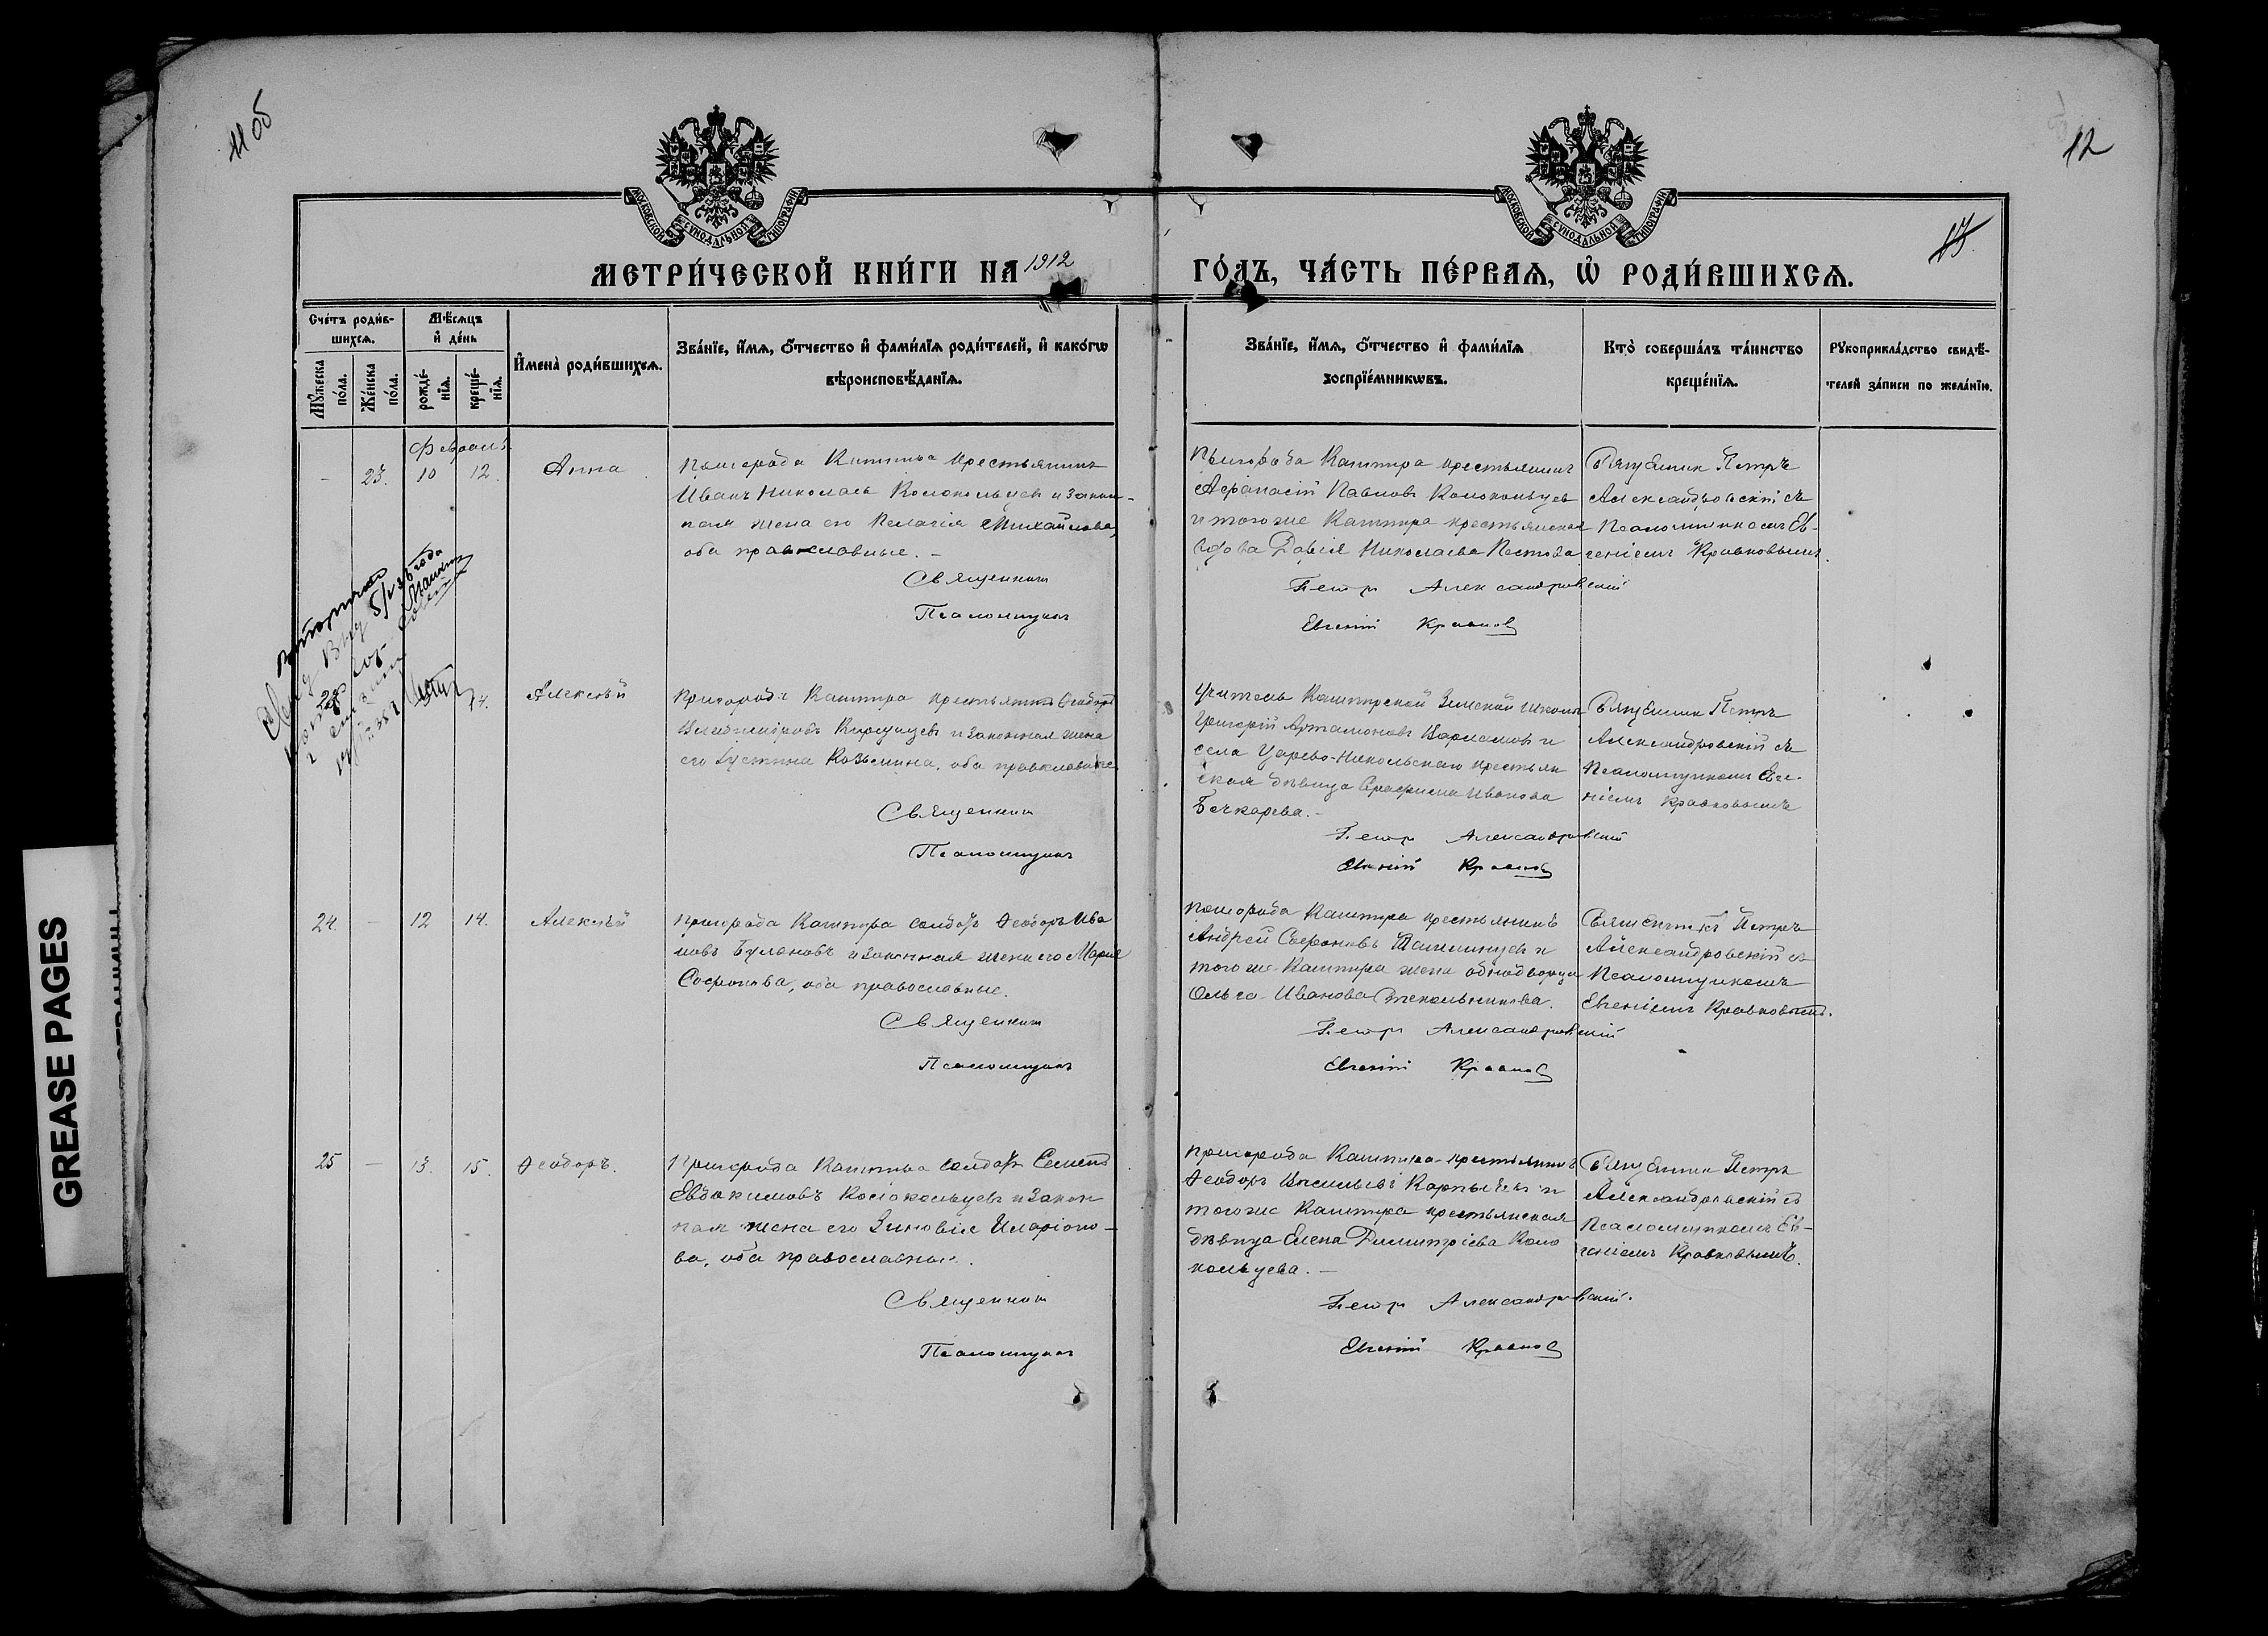 11 об
12
13.
МОСКОВСКОЙ СѴНОДАЛЬНОЙ ТИПОГРАФІИ
МОСКОВСКОЙ СѴНОДАЛЬНОЙ ТИПОГРАФІИ
МЕТРИ́ЧЕСКОЙ КНИ́ГИ НА 1912
ГО́ДЪ, ЧА́СТЬ ПЕ́РВАѦ, Ѡ҆ РОДИ́ВШИХСѦ.
Сче́тъ роди́в-
шихсѧ.
Мѣ́сѧцъ
и҆ де́нь
Мꙋ́жеска
по́ла.
Же́нска
по́ла.
рожде́-
нїѧ.
креще́-
нїѧ.
И҆мена̀ роди́вшихсѧ.
Зва́нїе, и҆́мѧ, ѻ҆́тчество и҆ фами́лїѧ роди́телей, и҆ како́гѡ
вѣроисповѣ́данїѧ.
Зва́нїе, и҆́мѧ, ѻ҆́тчество и҆ фами́лїѧ
воспрїе́мникѡвъ.
Кто̀ соверша́лъ та́инство
креще́нїѧ.
Рꙋкоприкла́дство свидѣ́-
телей за́писи по жела́нїю.
Февраль
- 23. 10 12. Анна
Пригорода Каштира крестьянинъ
Иванъ Николаевъ Колокольцевъ и закон-
ная жена его Пелагія Михайлова,
оба православные. -
Священникъ
Псаломщикъ
Пригорода Каштира крестьянинъ
Афанасій Павловъ Колокольцевъ
и того же Каштира крестьянская
вдова Дарія Николаева Пестова
Петръ Александровскій
Евгеній Кравковъ
Священникъ Петръ
Александровскій съ
Псаломщикомъ Ев-
геніемъ Кравковымъ.
14. Алексѣй
Пригорода Каштира крестьянинъ Ѳеодоръ
его Іустина Козьмина, оба православные.
Священникъ
Псаломщикъ
Учитель Каштирской Земской школы
Григорій Артамоновъ Варламовъ и
села Царево-Никольскаго крестьян
ская дѣвица Серафима Иванова
Бочкарева. -
Петръ Александровскій
Евгеній Кравковъ
Священникъ Петръ
Александровскій съ
Псаломщикомъ Евге-
ніемъ Кравковымъ
24. - 12 14. Алексѣй
Пригорода Каштира солдатъ Ѳеодоръ Ива
новъ Булановъ и законная жена его Марія
Софронова, оба православные.
Священникъ
Псаломщикъ
Пригорода Каштира крестьянинъ
Андрей Софроновъ и
того же Каштира жена однодворца
Ольга Иванова Стекольникова.
Петръ Александровскій
Евгеній Кравковъ
Священникъ Петръ
Александровскій съ
Псаломщикомъ
Евгеніемъ Кравковымъ.
25 - 13. 15. Ѳеодоръ.
Пригорода Каштира солдатъ Семенъ
Евдокимовъ Колокольцевъ и закон
ная жена его Зиновія Иларіоно-
ва, оба православные.
Священникъ
Псаломщикъ
Пригорода Каштира крестьянинъ
Ѳеодоръ Васильевъ Карпычевъ и
того же Каштира крестьянская
дѣвица Елена Димитріева Коло
кольцева. -
Петръ Александровскій.
Евгеній Кравковъ
Священникъ Петръ
Александровскій съ
Псаломщикомъ Ев-
геніемъ Кравковымъ.
GREASE PAGES